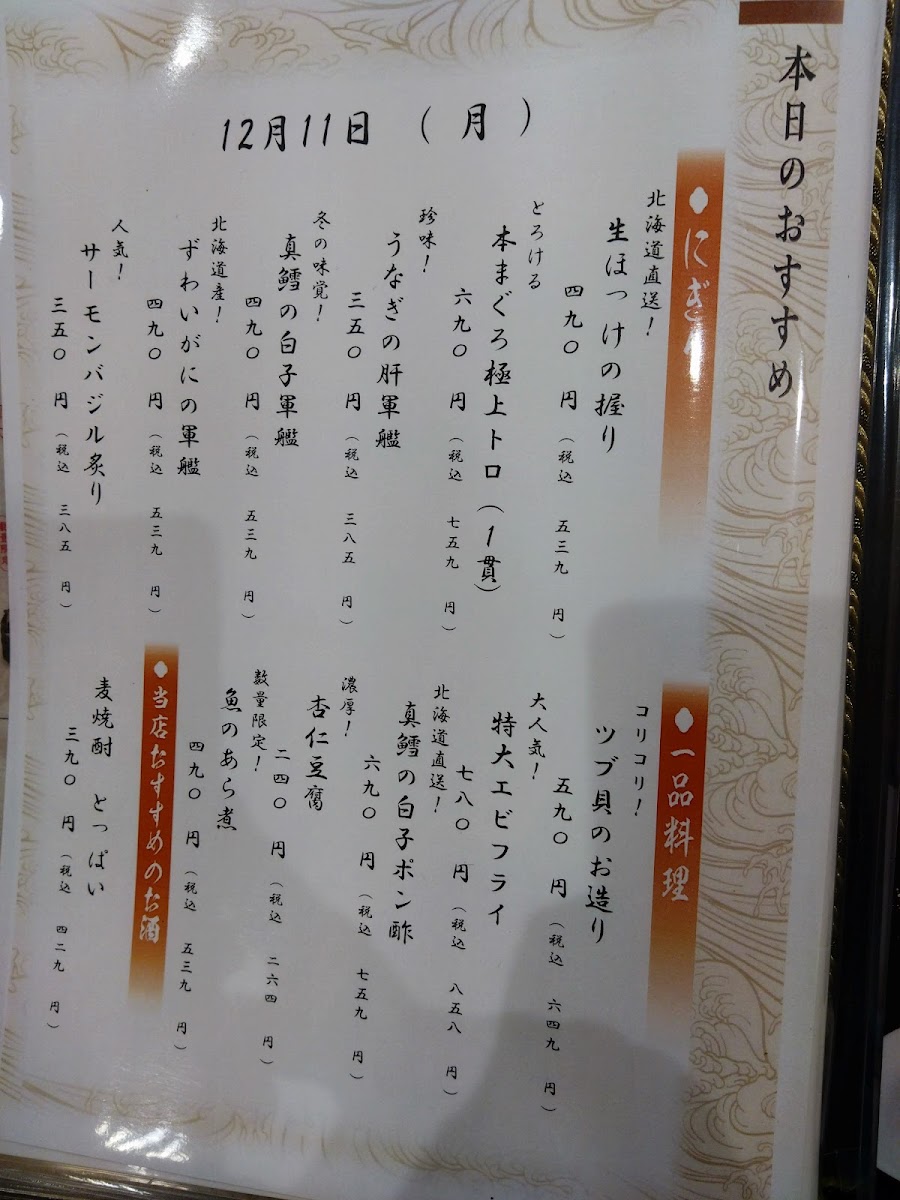 本日のおすすめ
12月11日 (月)
にぎり
北海道直送!
生ほっけの握り
四九〇 円 (税込 五三九 円)
とろける
本まぐろ極上トロ(1貫)
六九〇 円 (税込 七五九 円)
珍味!
うなぎの肝軍艦
三五〇 円 (税込 三八五 円)
冬の味覚!
真鱈の白子軍艦
四九〇 円 (税込 五三九 円)
北海道産!
ずわいがにの軍艦
四九〇 円 (税込 五三九 円)
人気!
サーモンバジル炙り
三五〇 円 (税込 三八五 円)
一品料理
コリコリ!
ツブ貝のお造り
五九〇 円 (税込 六四九 円)
大人気!
特大エビフライ
七八〇 円 (税込 八五八 円)
北海道直送!
真鱈の白子ポン酢
六九〇 円 (税込 七五九 円)
濃厚!
杏仁豆腐
二四〇 円 (税込 二六四 円)
数量限定!
魚のあら煮
四九〇 円 (税込 五三九 円)
当店おすすめのお酒
麦焼酎 とっぱい
三九〇 円 (税込 四二九 円)